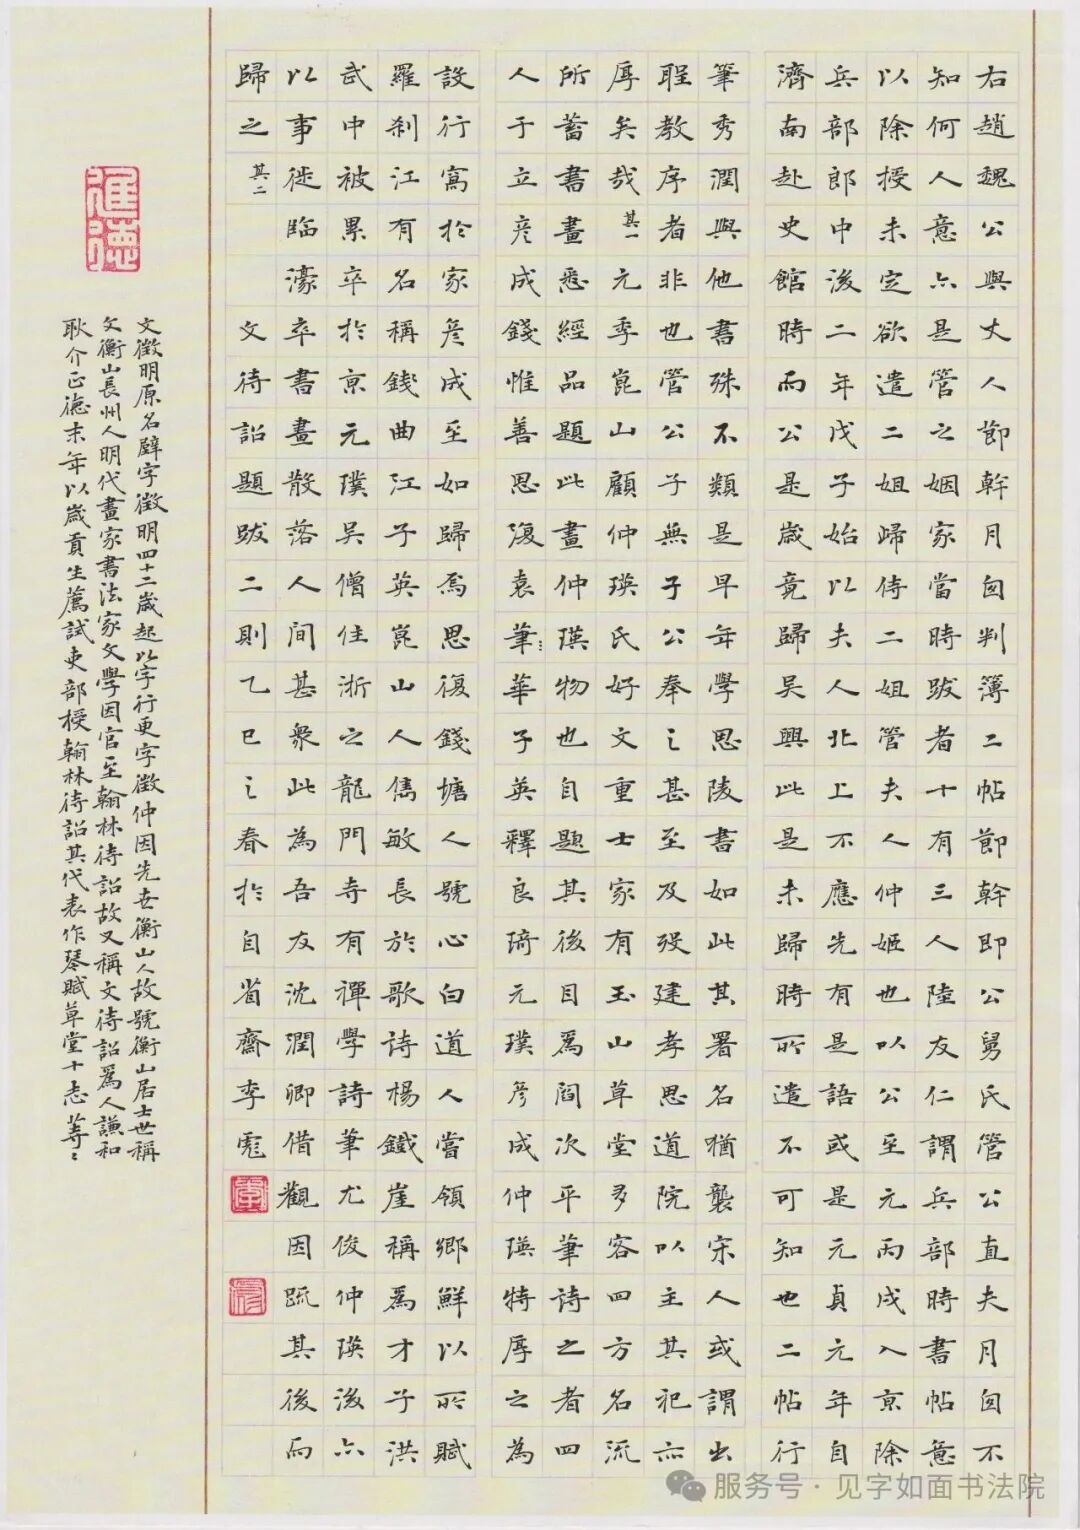 右趙魏公與丈人節幹月囱判簿二帖節幹即公舅氏管公直夫月囱不
知何人意亦是管之姻家當時跋者十有三人陸友仁謂兵部時書帖意
以除授未定欲遣二姐歸侍二姐管夫人仲姬也以公至元丙戌入京除
兵部郎中後二年戊子始以夫人北上不應先有是語或是元貞元年自
濟南赴史館時而公是歲竟歸吳興此是未歸時所遣不可知也二帖行
筆秀潤與他書殊不類是早年學思陵書如此其署名猶襲宋人或謂出
聖教序者非也管公子無子公奉之甚至及歿建孝思道院以主其祀亦
厚矣哉其一元季崑山顧仲瑛氏好文重士家有玉山草堂多客四方名流
所蓄書畫悉經品題此畫仲瑛物也自題其後目為閻次平筆詩之者四
人于立彥成錢惟善思復袁華子英釋良琦元璞彥成仲瑛特厚之為
設行窩於家彥成至如歸焉思復錢塘人號心白道人嘗領鄉鮮以所賦
羅剎江有名稱錢曲江子英崑山人雋敏長於歌詩楊鐵崖稱為才子洪
武中被累卒於京元璞吳僧住浙之龍門寺有禪學詩筆尤俊仲瑛後亦
以事徙臨濠卒書畫散落人間甚衆此為吾友沈潤卿借觀因疏其後而
歸之其二 文待詔題跋二則乙巳之春於自省齋李彪
進德
文徵明原名壁字徵明四十二歲起以字行更字徵仲因先世衡山人故號衡山居士世稱
文衡山長州人明代畫家書法家文學因官至翰林待詔故又稱文待詔為人謙和
耿介正德末年以歲貢生薦試吏部授翰林待詔其代表作琴賦草堂十志等等
服务号 · 见字如面书法院